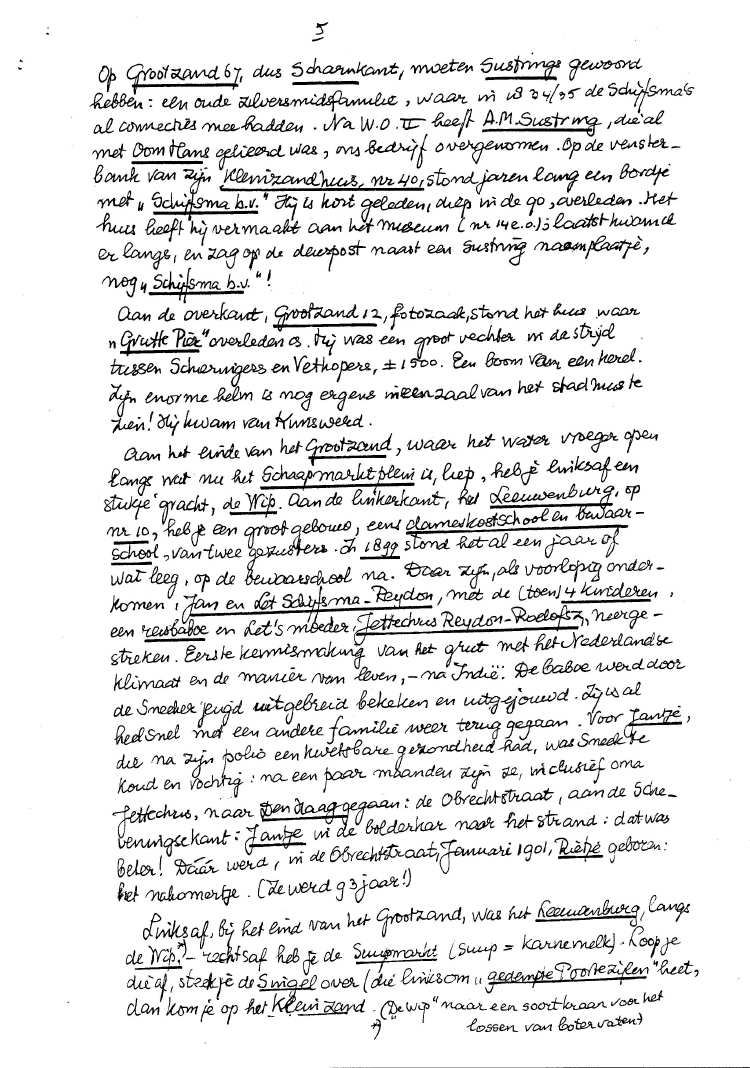 5
Op Grootzand 67, dus Scharnkant, moeten Sustrings gewoond
hebben: een oude zilversmidsfamilie, waar in 1834/35 de Schijfsma's
al connecties mee hadden. Na W.O. II heeft A.M. Sustring, die al
met Oom Hans gelieerd was, ons bedrijf overgenomen. Op de venster-
bank van zijn Kleinzandhuis, nr 40, stond jaren lang een bordje
met „Schijfsma b.v." Hij is kort geleden, diep in de 90, overleden. Het
huis heeft hij vermaakt aan het museum (nr 14 e.o.); laatst kwam ik
er langs, en zag op de deurpost naast een Sustring naamplaatje,
nog „Schijfsma b.v."!
Aan de overkant, Grootzand 12, fotozaak, stond het huis waar
„Grutte Pier" overleden is. Hij was een groot vechter in de strijd
tussen Schieringers en Vetkopers, ± 1500. Een boom van een kerel.
Zijn enorme helm is nog ergens in een zaal van het stadhuis te
zien! Hij kwam van Kimswerd.
Aan het einde van het Grootzand, waar het water vroeger open
langs wat nu het Schaapmarktplein is, liep, heb je linksaf een
stukje gracht, de Wip. Aan de linkerkant, het Leeuwenburg, op
nr 10, heb je een groot gebouw, eens dameskostschool en bewaar-
school, van twee gezusters. In 1899 stond het al een jaar of
wat leeg, op de bewaarschool na. Daar zijn, als voorlopig onder-
komen, Jan en Let Schijfsma-Reydon, met de (toen) 4 kinderen,
een reisbaboe en Let's moeder Jettechrus Reydon-Rodofsz, neerge-
streken. Eerste kennismaking van het grut met het Nederlandse
klimaat en de manier van leven, – na Indië. De baboe werd door
de Sneeker jeugd uitgebreid bekeken en uitgejouwd. Zij is al
heel snel met een andere familie weer terug gegaan. Voor Jantje,
die na zijn polio een kwetsbare gezondheid had, was Sneek te
koud en vochtig: na een paar maanden zijn ze, inclusief oma
Jettechrus, naar Den Haag gegaan: de Obrechtstraat, aan de Sche-
veningsekant: Jantje in de bolderkar naar het strand: dat was
beter! Dáár werd, in de Obrechtstraat, Januari 1901, Rietje geboren:
het nakomertje. (Ze werd 93 jaar!)
Linksaf, bij het eind van het Grootzand, was het Leeuwenburg, langs
de Wip, *) – rechtsaf heb je de Suupmarkt (Suup = karnemelk). Loop je
die af, steek je de Singel over (die linksom „gedempte Poortezijlen" heet,
dan kom je op het Kleinzand. („De Wip" naar een soort kraan voor het
*) lossen van botervaten)